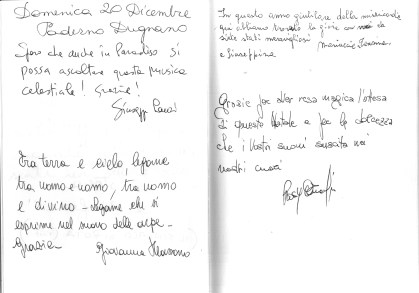 Domenica 20 Dicembre
Paderno Dugnano
Spero che anche in Paradiso si
possa ascoltare questa musica
celestiale! Grazie!
Giuseppe
Tra terra e cielo, legame
tra uomo e uomo, tra uomo
e divino - legame che si
esprime nel suono delle arpe -
Grazie -
Giovanna
In questo anno giubilare della misericordia
qui abbiamo trovato la gioia
siete stati meravigliosi
e Giuseppina
Grazie per aver resa magica l'attesa
di questo Natale e per la dolcezza
che i vostri suoni suscita nei
nostri cuori